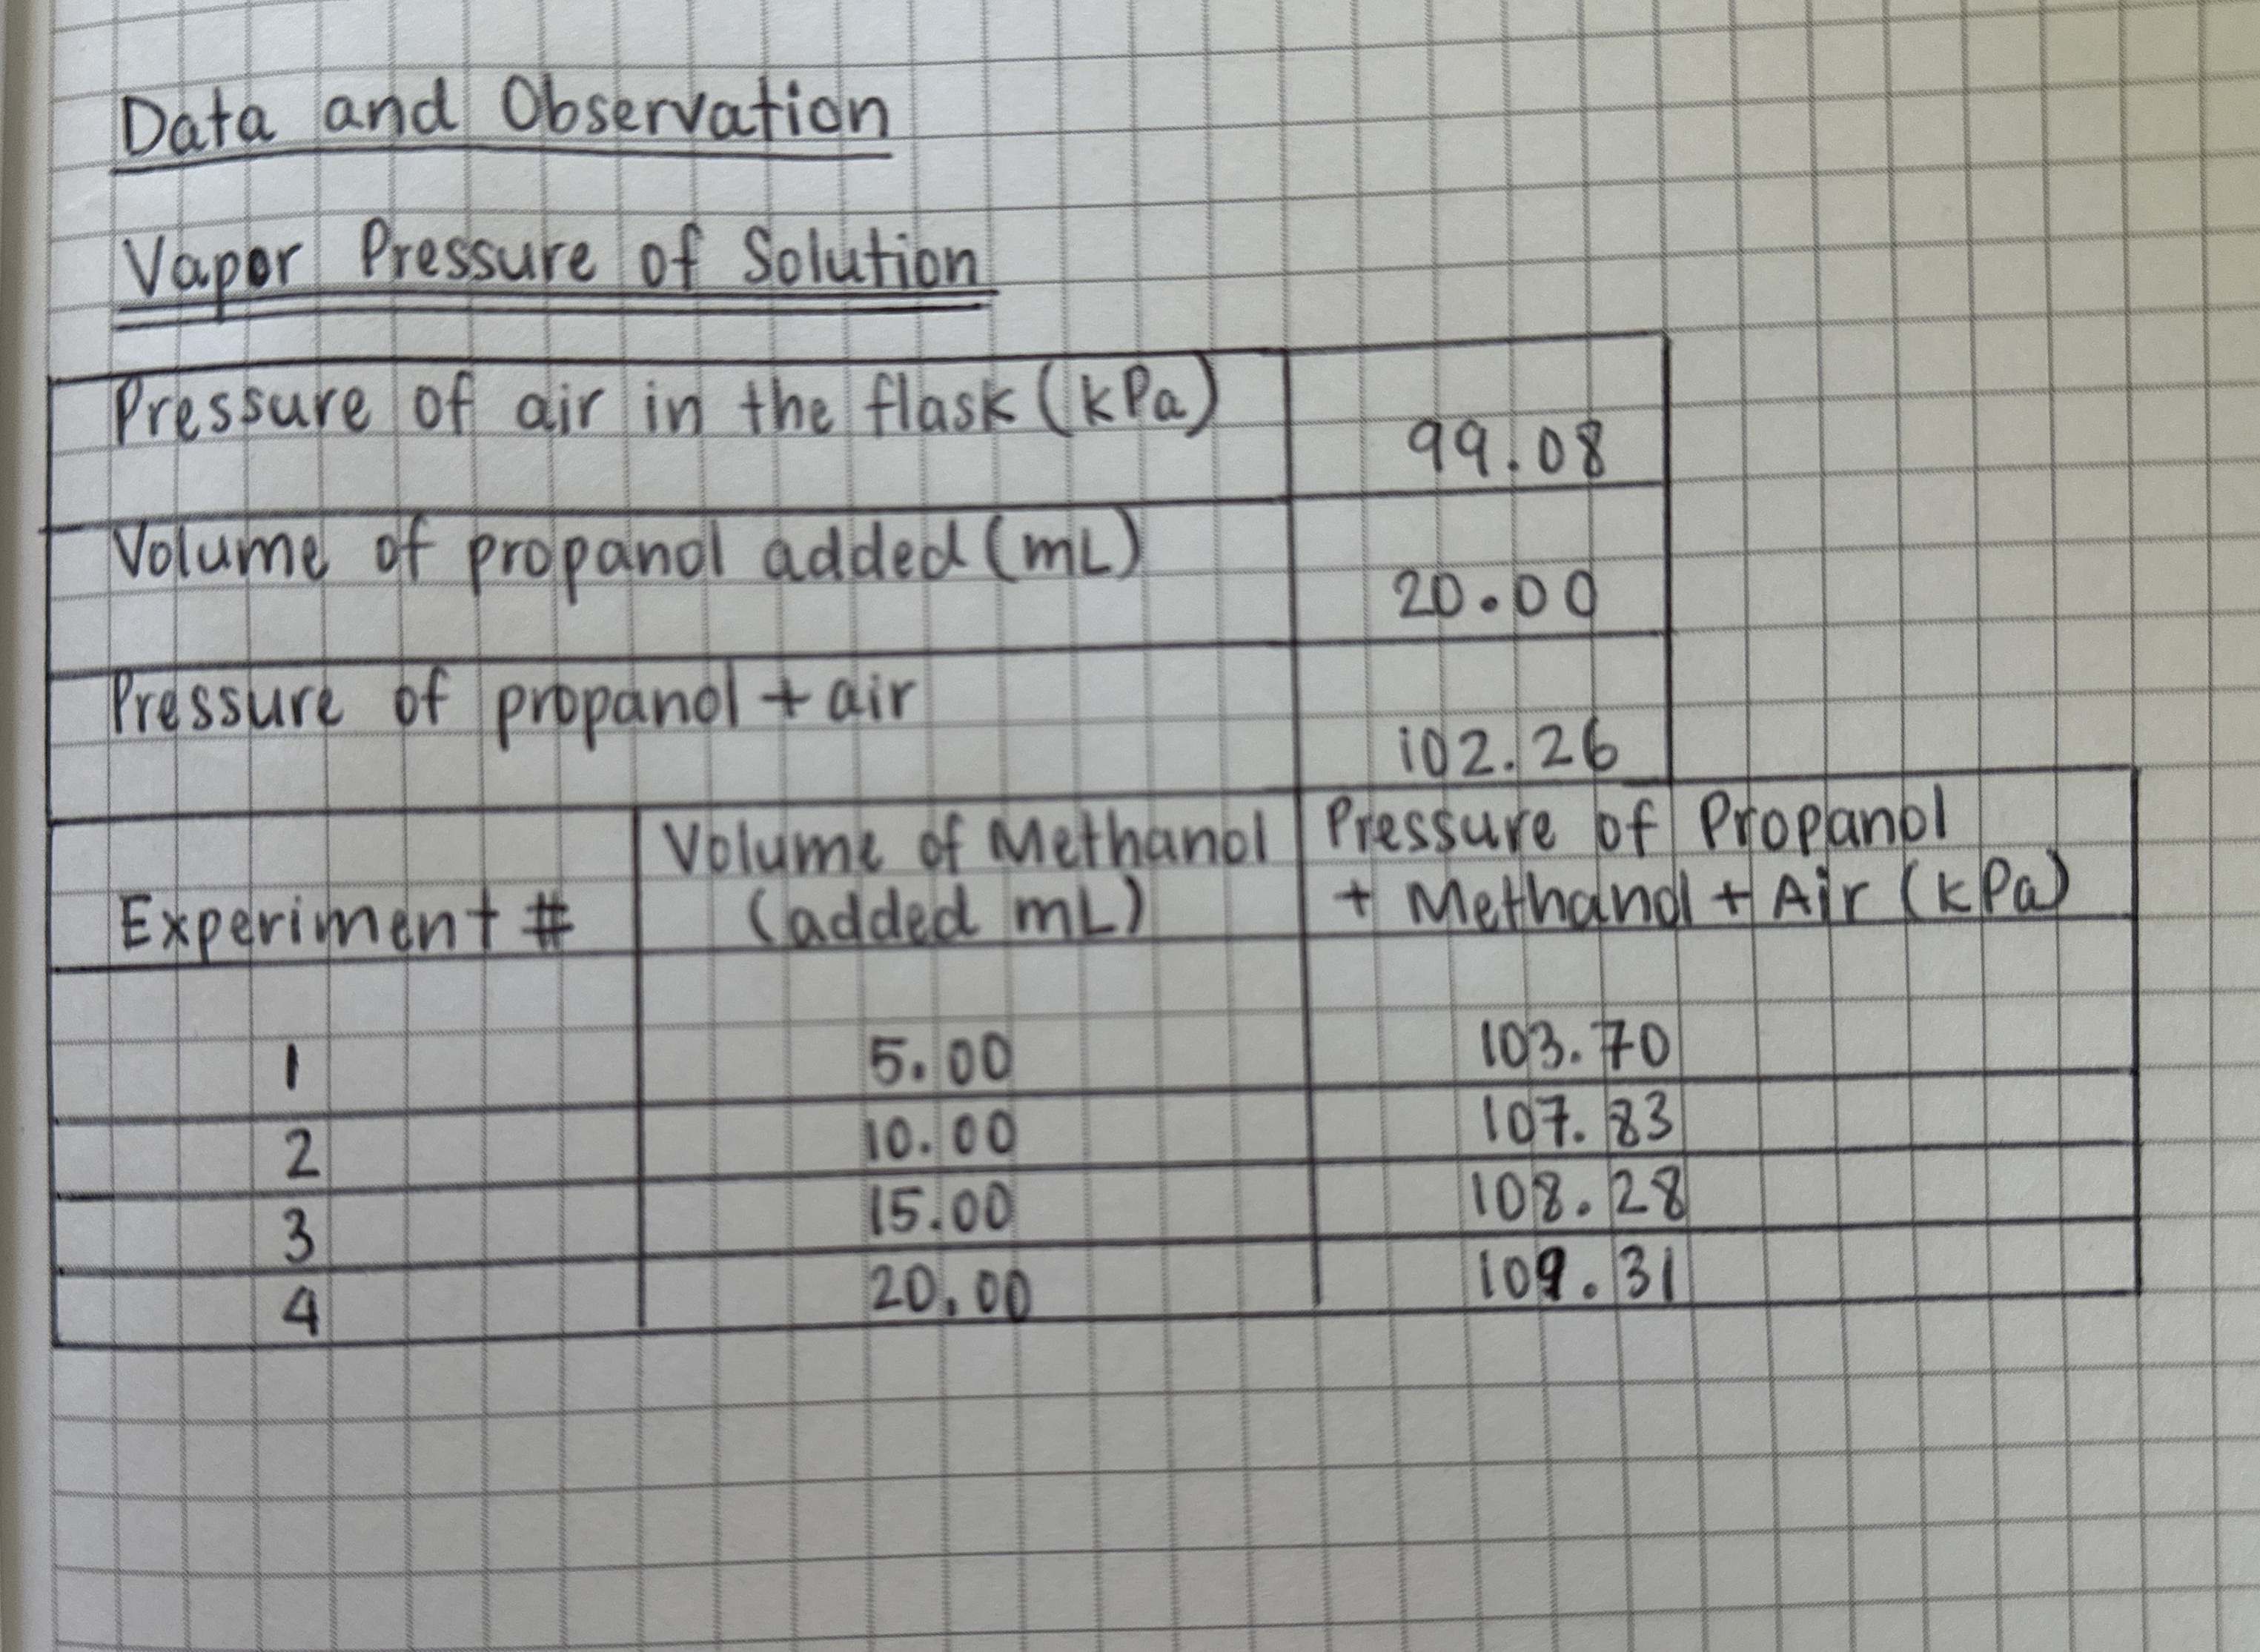 Data and Observation
Vapor Pressure of Solution
Pressure of air in the flask (kPa) 99.08
Volume of propanol added (mL) 20.00
Pressure of propanol + air 102.26
Experiment # Volume of Methanol (added mL) Pressure of Propanol + Methanol + Air (kPa)
1 5.00 103.70
2 10.00 107.83
3 15.00 108.28
4 20.00 109.31